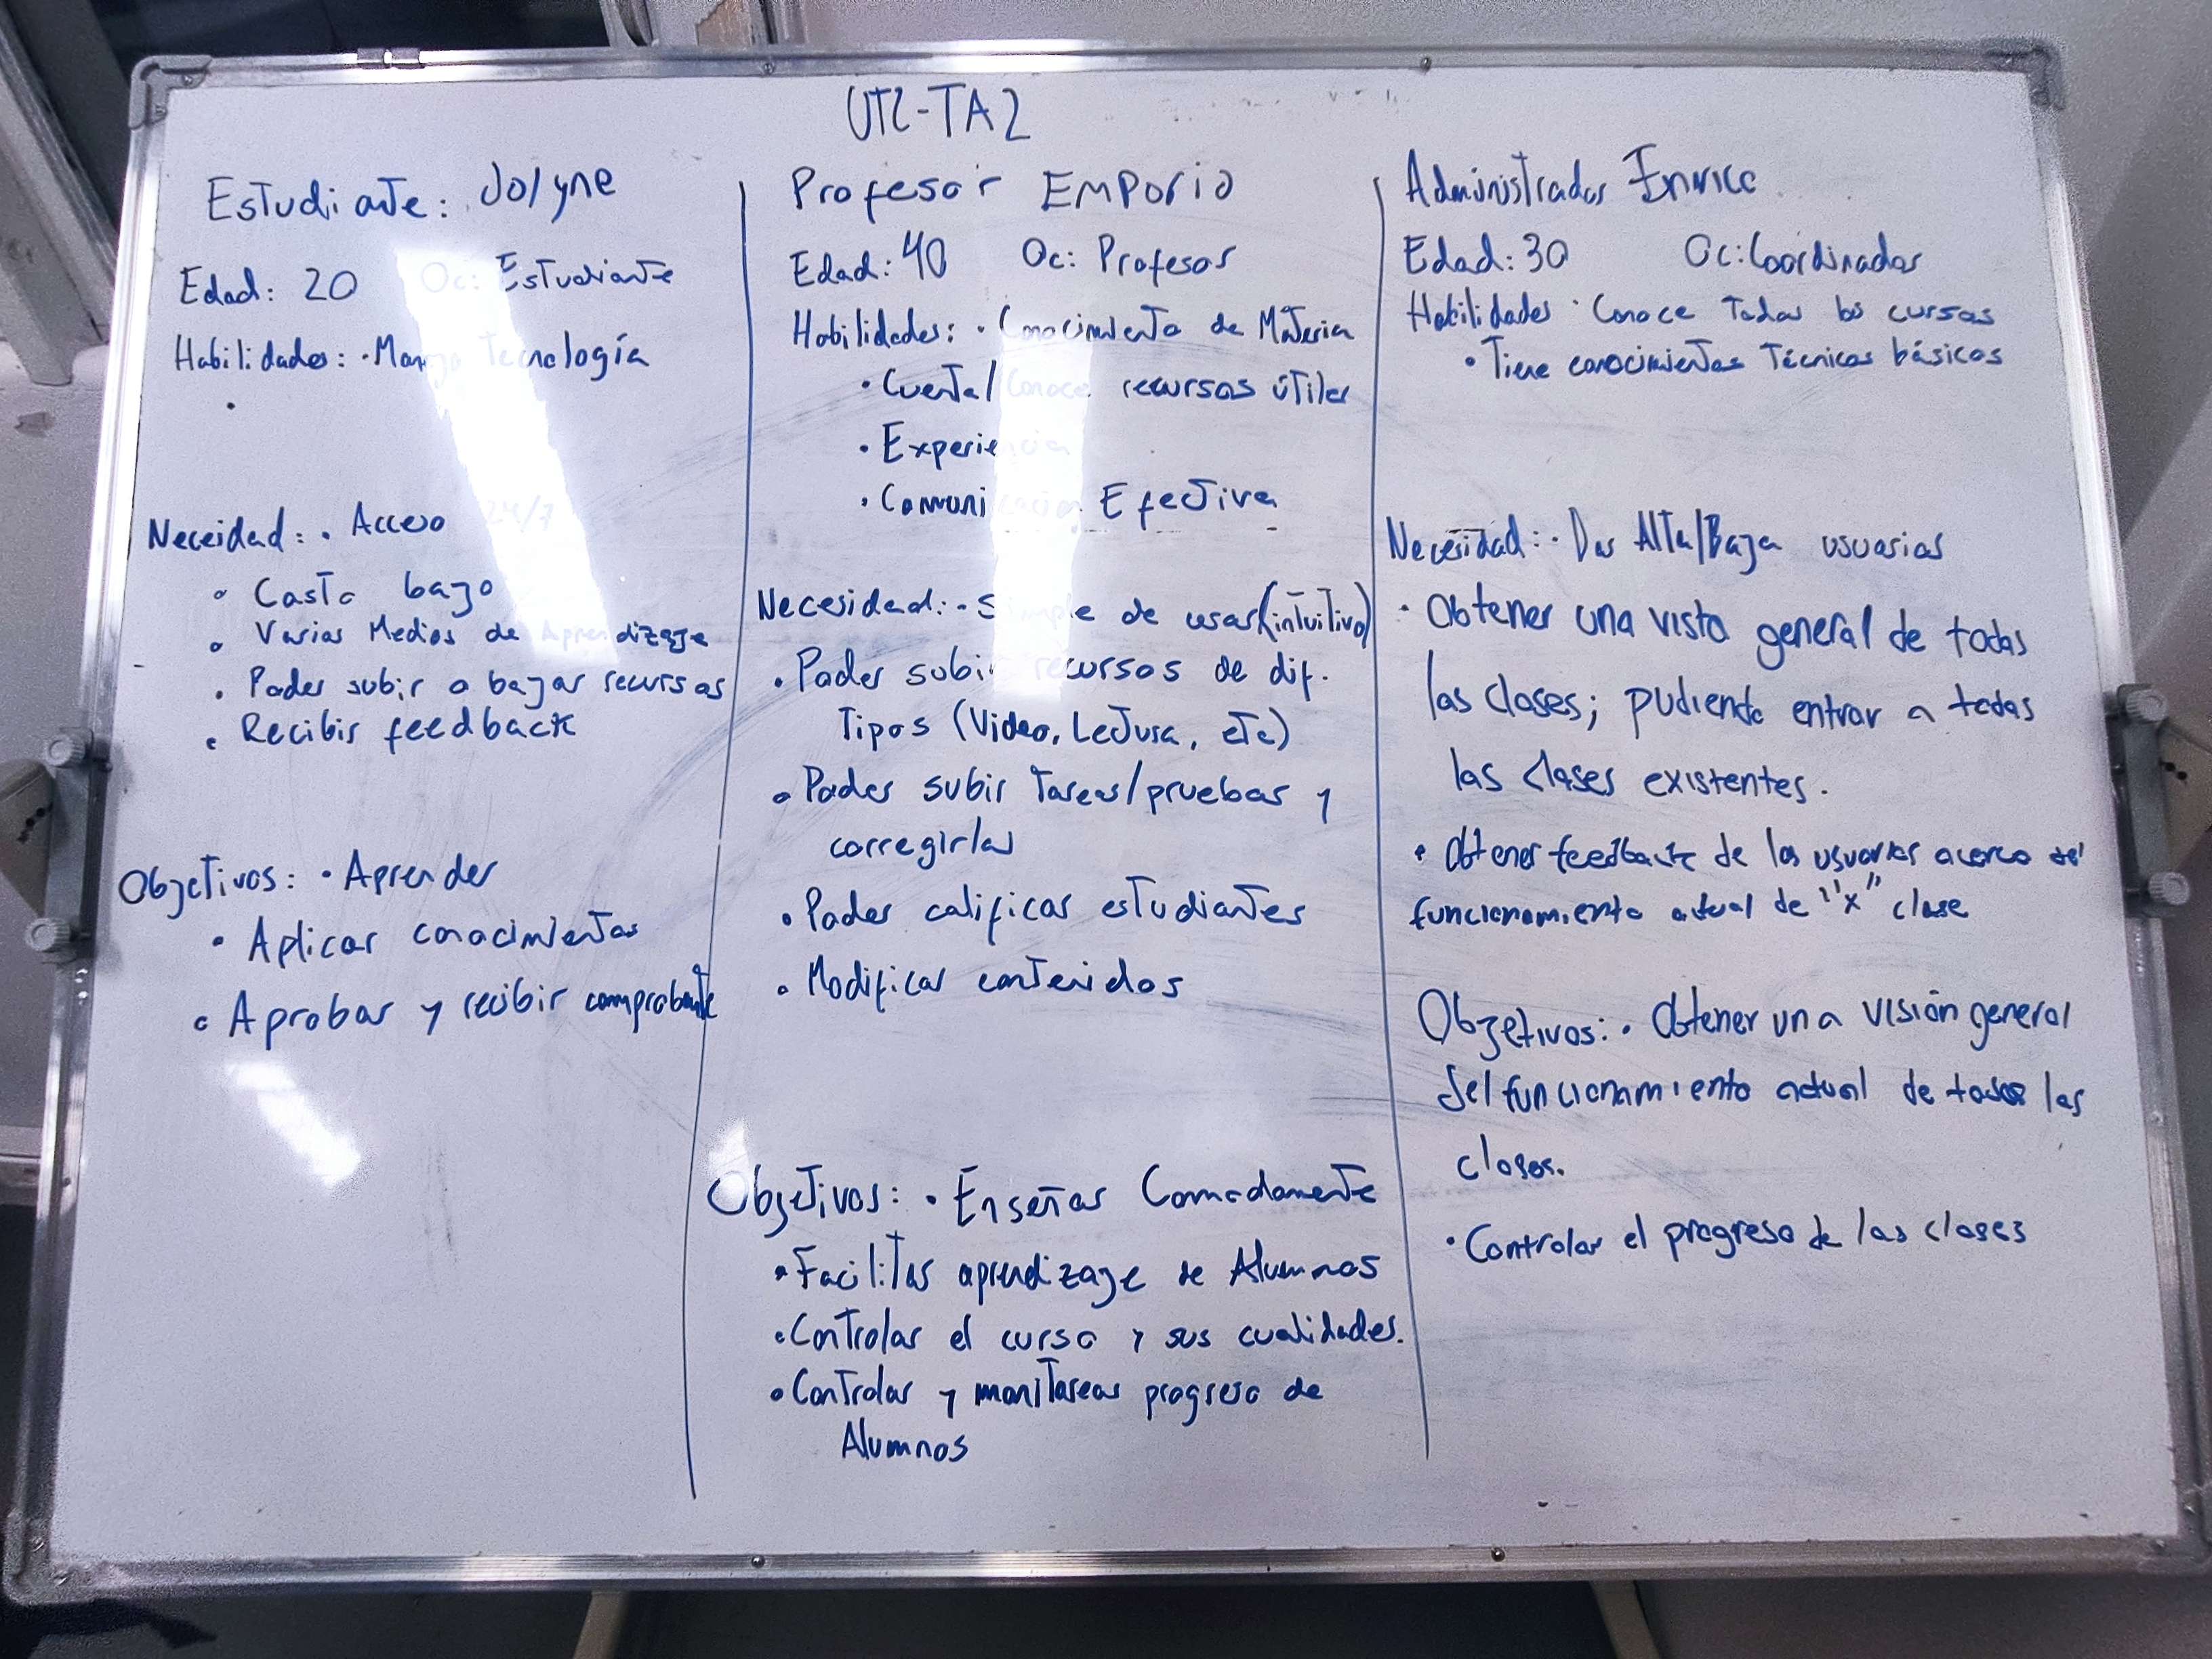 UT2-TA2
Estudiante: Jolyne
Edad: 20 Oc: Estudiante
Habilidades: · Manejo Tecnología
·
Neceidad: · Acceso 24/7
· Costo bajo
· Varios Medios de Aprendizaje
· Poder subir o bajar recursos
· Recibir feedback
Objetivos: · Aprender
· Aplicar conocimientos
· Aprobar y recibir comprobante
Profesor EMPORIO
Edad: 40 Oc: Profesor
Habilidades: · Conocimiento de Materia
· Cuenta/Conoce recursos útiles
· Experiencia
· Comunicacion Efectiva
Necesidad: · Simple de usar (intuitivo)
· Poder subir recursos de dif.
Tipos (Video, Lectura, etc)
· Poder subir Tareas/pruebas y
corregirlas
· Poder calificar estudiantes
· Modificar contenidos
Objetivos: · Enseñar Comodamente
· Facilitar aprendizaje de Alumnos
· Controlar el curso y sus cualidades.
· Controlar y monitorear progreso de
Alumnos
Administrador Enrico
Edad: 30 Oc: Coordinador
Habilidades · Conoce Todos los cursos
· Tiene conocimientos Técnicos básicos
Necesidad: · Dar Alta/Baja usuarios
· Obtener una vista general de todas
las clases; pudiendo entrar a todas
las clases existentes.
· Obtener feedback de los usuarios acerca del
funcionamiento actual de "x" clase
Objetivos: · Obtener una visión general
del funcionamiento actual de todas las
clases.
· Controlar el progreso de las clases